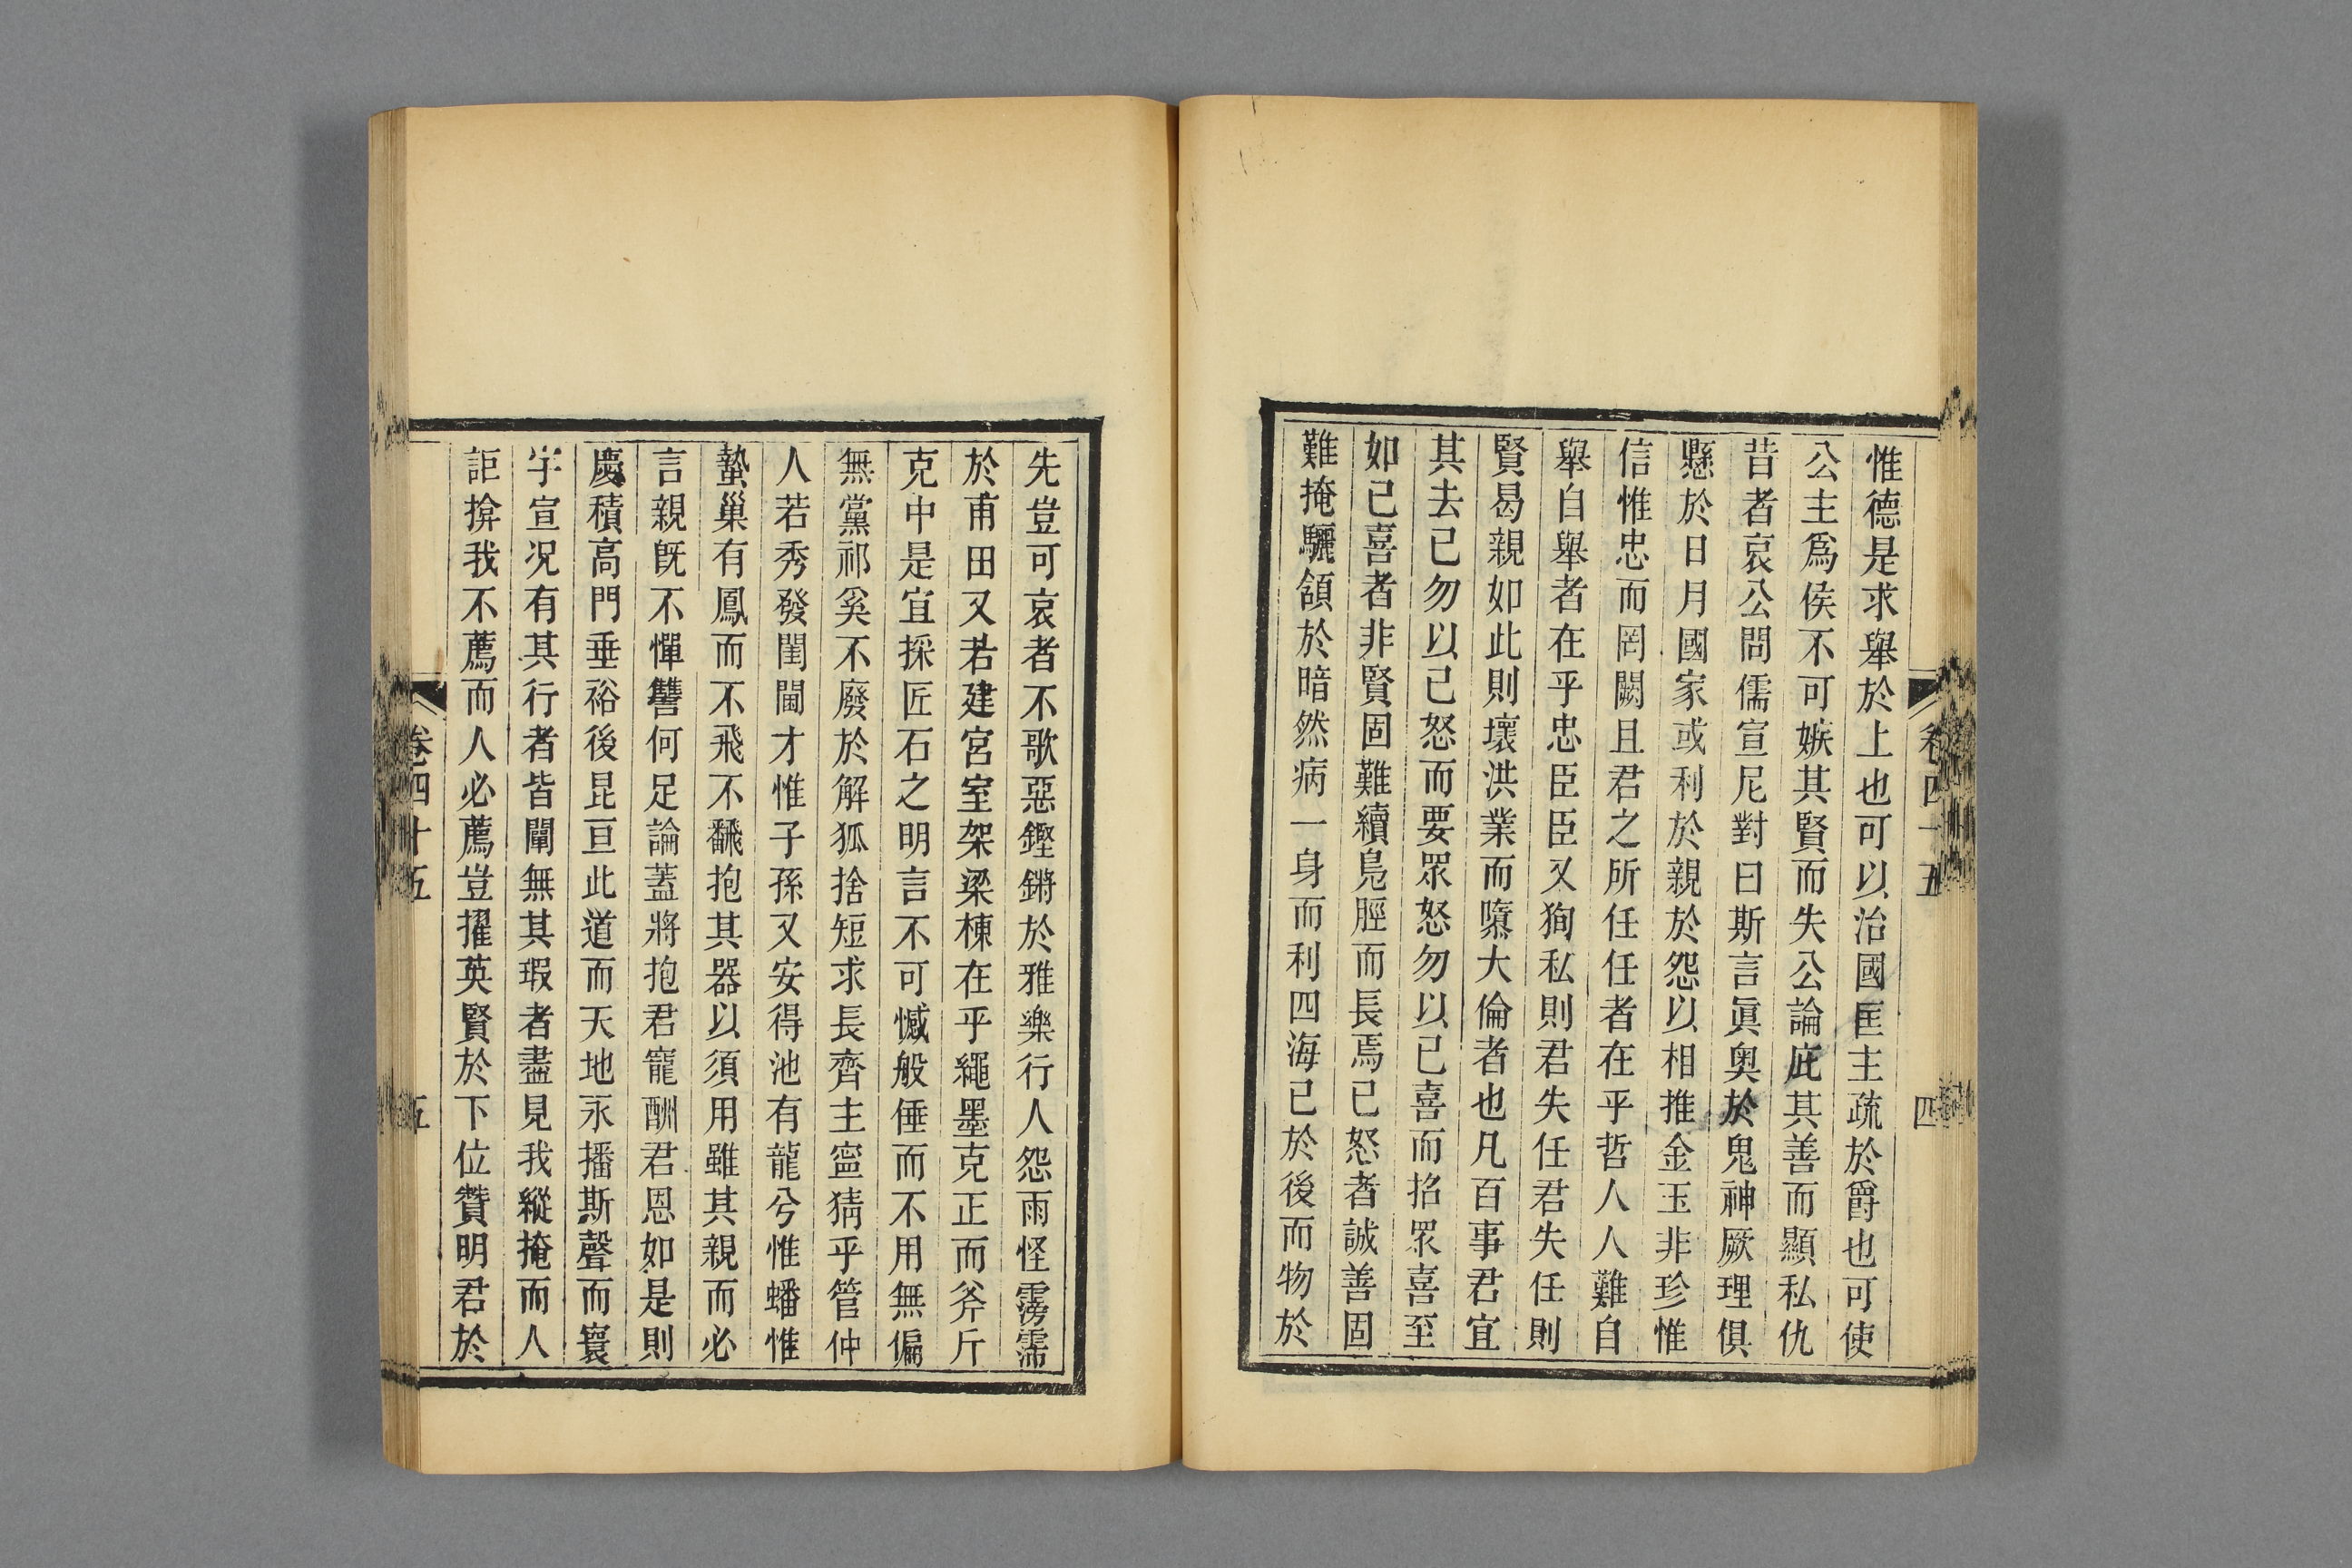 惟德是求舉於上也可以治國匡主疏於爵也可使
公主爲侯不可嫉其賢而失公論庇其善而顯私仇
昔者哀公問儒宣尼對曰斯言眞奧於鬼神厥理俱
懸於日月國家或利於親於怨以相推金玉非珍惟
信惟忠而罔闕且君之所任任者在乎哲人人難自
舉自舉者在乎忠臣臣又狥私則君失任君失任則
賢曷親如此則壞洪業而隳大倫者也凡百事君宜
其去已勿以已怒而要眾怒勿以已喜而掐眾喜至
如已喜者非賢固難續鳬脛而長焉已怒者誠善固
難掩驪頷於暗然病一身而利四海已於後而物於
卷四十五
四
先豈可哀者不歌惡鏗鏘於雅樂行人怨雨怪霶霈
於甫田又若建宮室架梁棟在乎繩墨克正而斧斤
克中是宜採匠石之明言不可憾般倕而不用無偏
無黨祁奚不廢於解狐捨短求長齊主寍猜乎管仲
人若秀發閨閫才惟子孫又安得池有龍兮惟蟠惟
蟄巢有鳳而不飛不飜抱其器以須用雖其親而必
言親旣不憚讐何足論蓋將抱君寵酬君恩如是則
慶積高門垂裕後昆亘此道而天地永播斯聲而寰
宇宣况有其行者皆闡無其瑕者盡見我縱掩而人
詎揜我不薦而人必薦豈擢英賢於下位贊明君於
卷四十五
五